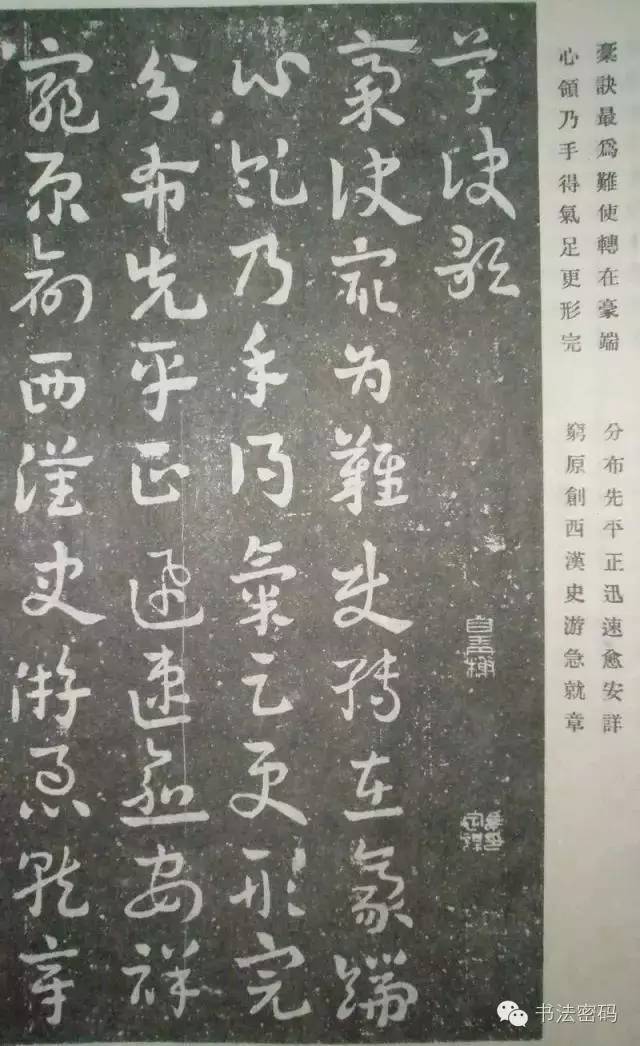 稾訣最爲難使轉在豪端
心領乃手得氣足更形完
分布先平正迅速愈安詳
窮原創西漢史游急就章
草訣歌
稾訣最为難使轉在豪端
心領乃手得氣足更形完
分布先平正迅速愈安祥
窮原創西漢史游急就章
书法密码